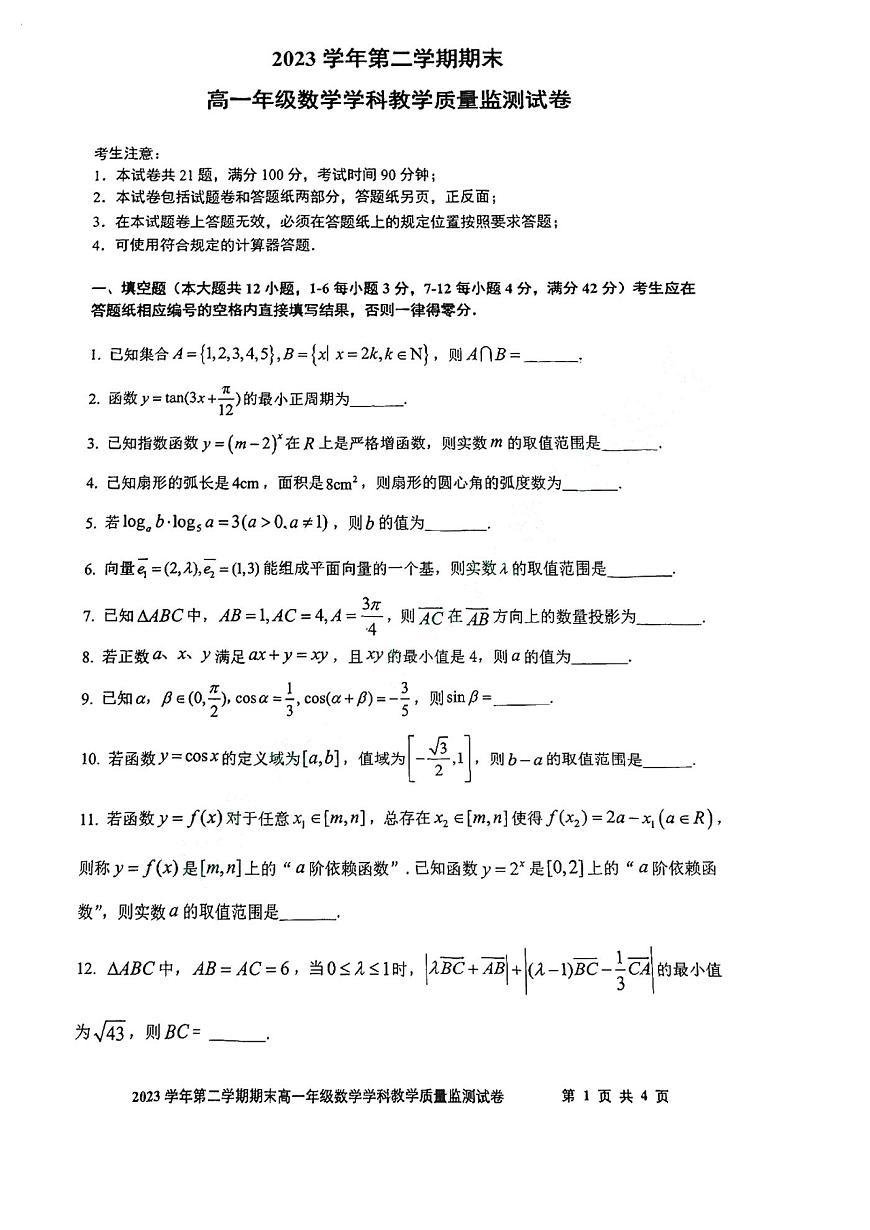 2023 学年第二学期期末
高一年级数学学科教学质量监测试卷
考生注意：
1．本试卷共 21 题，满分 100 分，考试时间 90 分钟；
2．本试卷包括试题卷和答题纸两部分，答题纸另页，正反面；
3．在本试题卷上答题无效，必须在答题纸上的规定位置按照要求答题；
4．可使用符合规定的计算器答题．
一、填空题（本大题共 12 小题，1-6 每小题 3 分，7-12 每小题 4 分，满分 42 分）考生应在
答题纸相应编号的空格内直接填写结果，否则一律得零分．
1. 已知集合 A={1,2,3,4,5},B={x| x=2k,k∈N}，则 A⋂B=______.
2. 函数 y=tan(3x+π/12)的最小正周期为______.
3. 已知指数函数 y=(m−2)^x 在 R 上是严格增函数，则实数 m 的取值范围是______.
4. 已知扇形的弧长是 4cm，面积是 8cm²，则扇形的圆心角的弧度数为______.
5. 若 log_a b·log_5 a=3(a>0,a≠1)，则 b 的值为______.
6. 向量 e₁=(2,λ),e₂=(1,3) 能组成平面向量的一个基，则实数 λ 的取值范围是______.
7. 已知 ΔABC 中，AB=1,AC=4,A=3π/4，则 AC 在 AB 方向上的数量投影为______.
8. 若正数 a、x、y 满足 ax+y=xy，且 xy 的最小值是 4，则 a 的值为______.
9. 已知 α，β∈(0,π/2), cosα=1/3, cos(α+β)=−3/5，则 sinβ=______.
10. 若函数 y=cosx 的定义域为[a,b]，值域为[−√3/2,1]，则 b−a 的取值范围是______.
11. 若函数 y=f(x) 对于任意 x₁∈[m,n]，总存在 x₂∈[m,n] 使得 f(x₂)=2a−x₁(a∈R)，
则称 y=f(x) 是[m,n]上的“ a 阶依赖函数”. 已知函数 y=2^x 是[0,2]上的“ a 阶依赖函
数”，则实数 a 的取值范围是______.
12. ΔABC 中，AB=AC=6，当 0≤λ≤1时，|λBC+AB|+|(λ−1)BC−1/3CA| 的最小值
为√43，则 BC= ______.
2023 学年第二学期期末高一年级数学学科教学质量监测试卷 第 1 页 共 4 页